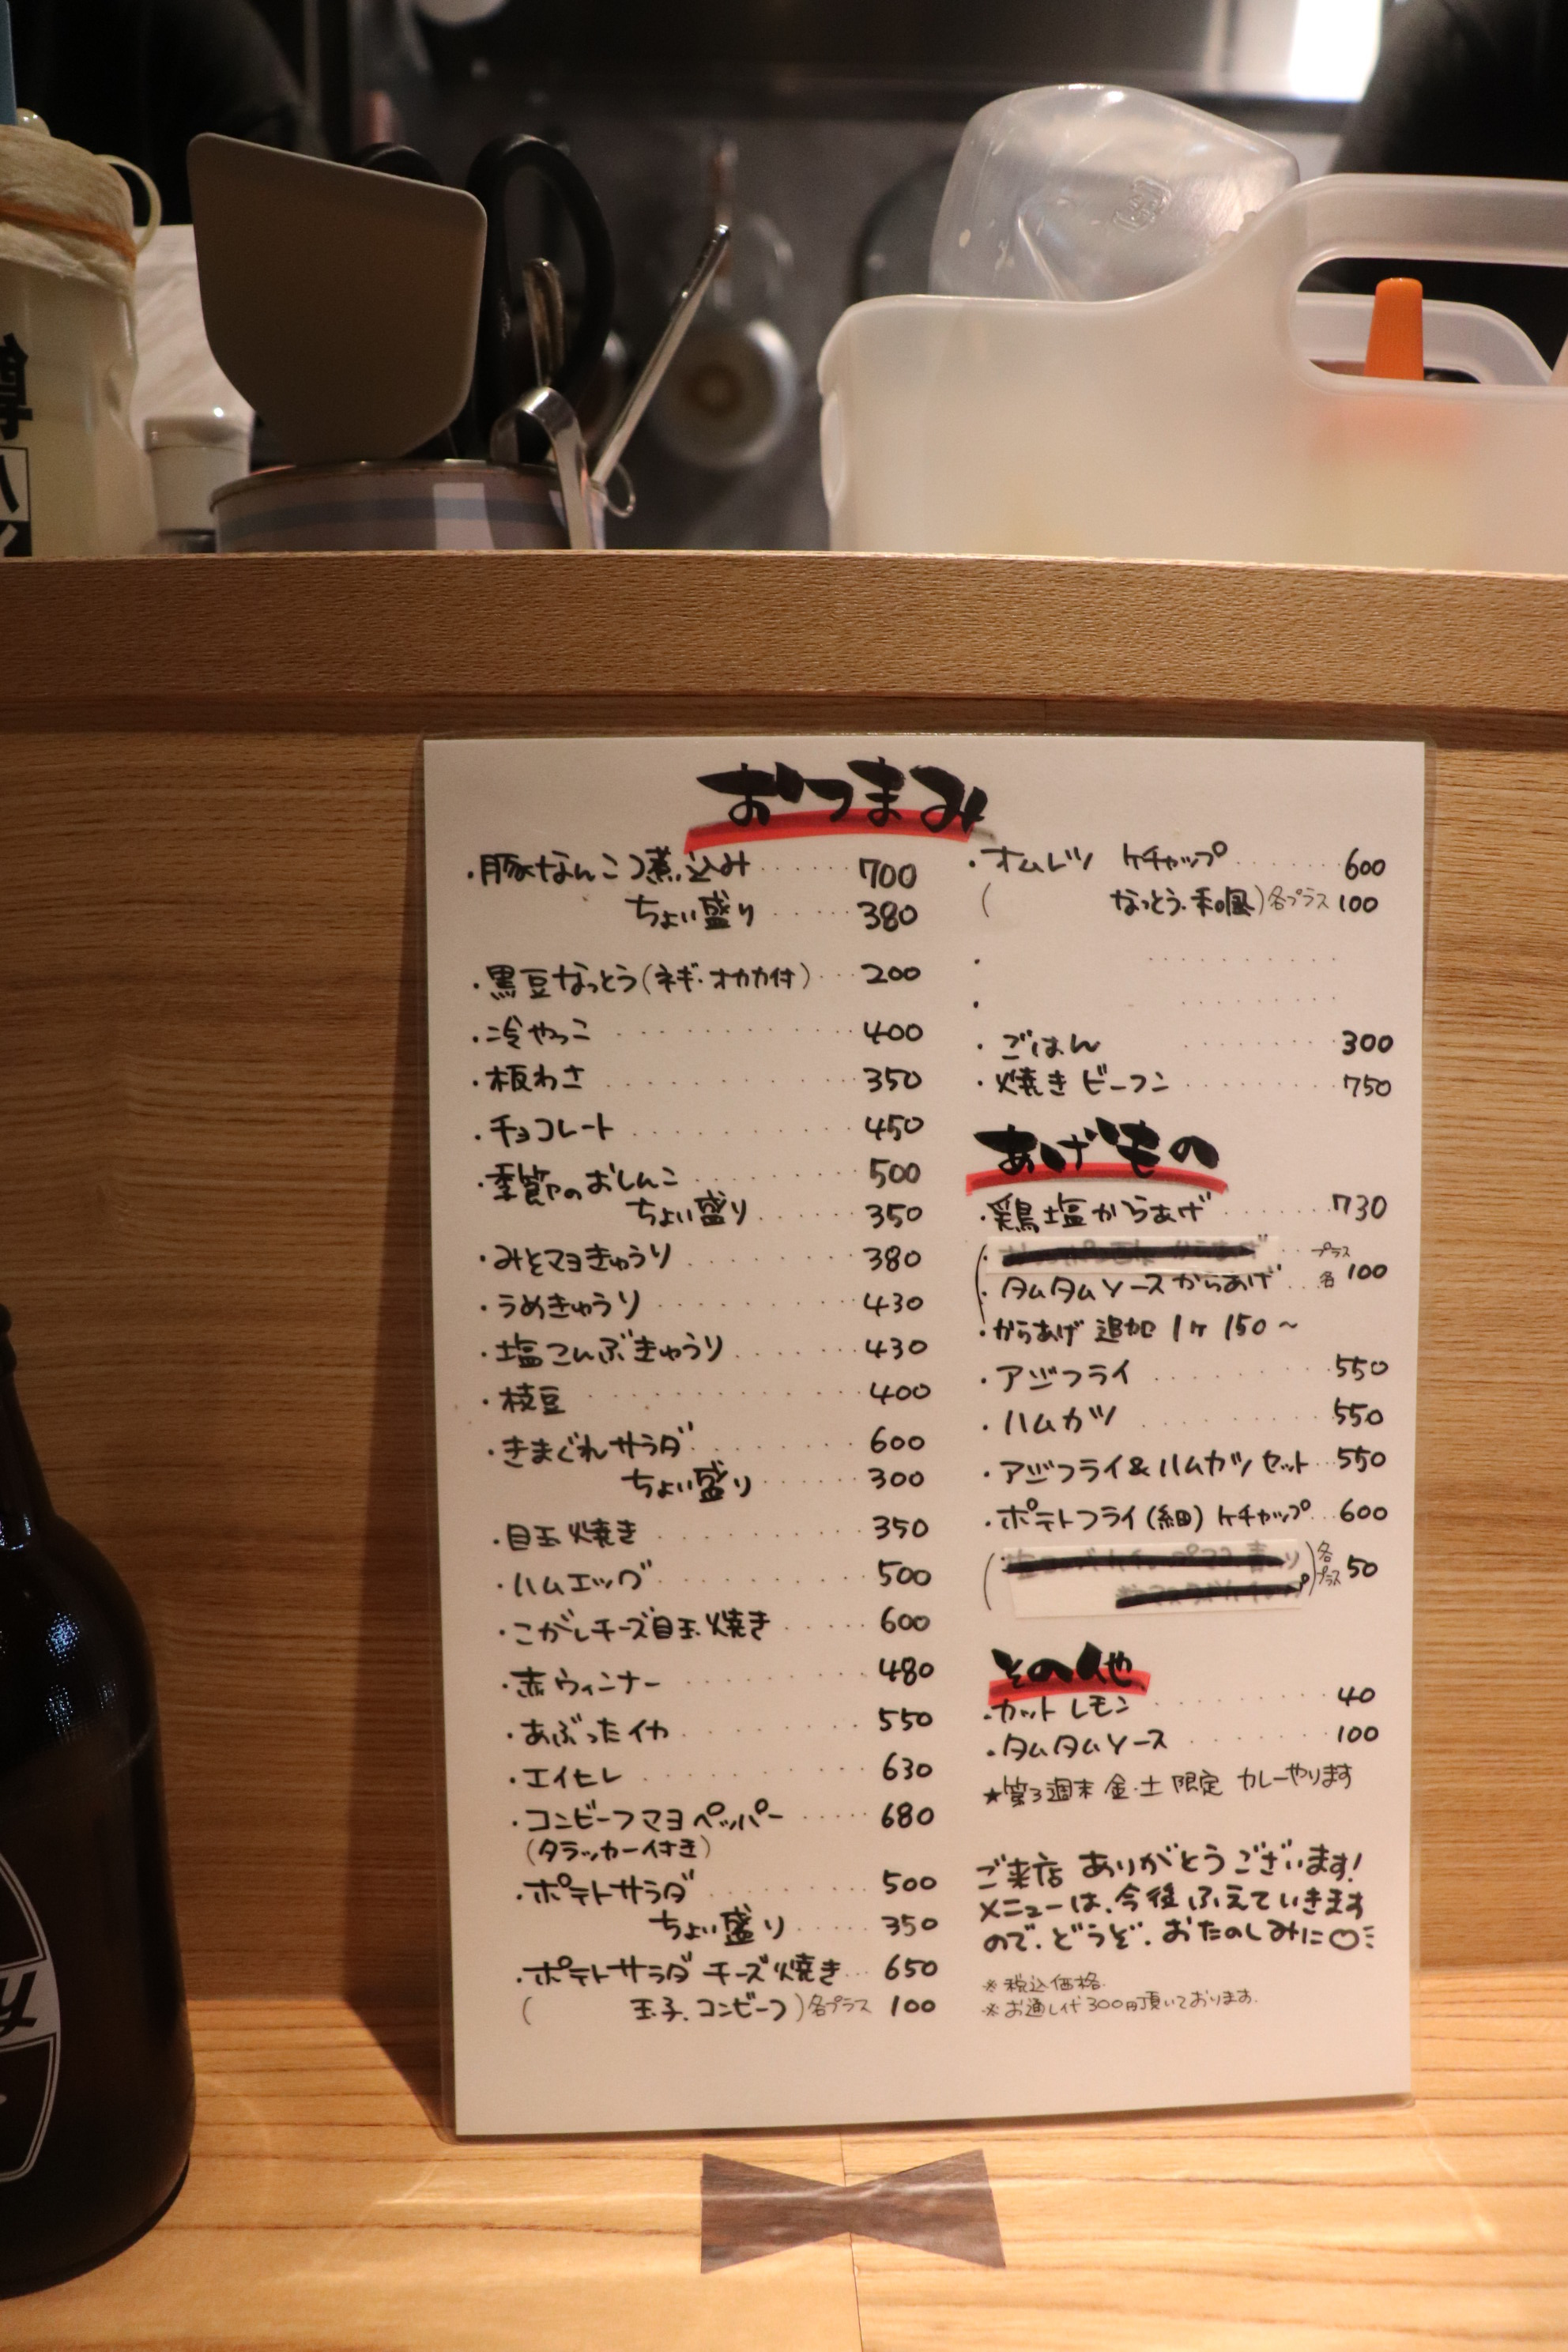 おつまみ
・豚なんこつ煮込み 700
ちょい盛り 380
・黒豆なっとう(ネギ・オカカ付) 200
・冷やっこ 400
・板わさ 350
・チョコレート 450
・季節のおしんこ 500
ちょい盛り 350
・みそマヨきゅうり 380
・うめきゅうり 430
・塩こんぶきゅうり 430
・枝豆 400
・きまぐれサラダ 600
ちょい盛り 300
・目玉焼き 350
・ハムエッグ 500
・こがしチーズ目玉焼き 600
・赤ウィンナー 480
・あぶったイカ 550
・エイヒレ 630
・コンビーフマヨペッパー 680
(クラッカー付き)
・ポテトサラダ 500
ちょい盛り 350
・ポテトサラダチーズ焼き 650
(玉子、コンビーフ)各プラス 100
・オムレツ ケチャップ 600
(なっとう・和風)各プラス 100
・ごはん 300
・焼きビーフン 750
あげもの
・鶏塩からあげ 730
・タムタムソースからあげ 各プラス100
・からあげ 追加 1ヶ 150〜
・アジフライ 550
・ハムカツ 550
・アジフライ&ハムカツセット 550
・ポテトフライ(細)ケチャップ 600
各プラス 50
その他
・カットレモン 40
・タムタムソース 100
★第3週末 金・土 限定 カレーやります
ご来店 ありがとうございます!
メニューは、今後ふえていきます
ので、どうぞ、おたのしみに
※税込価格
※お通し代300円頂いております。